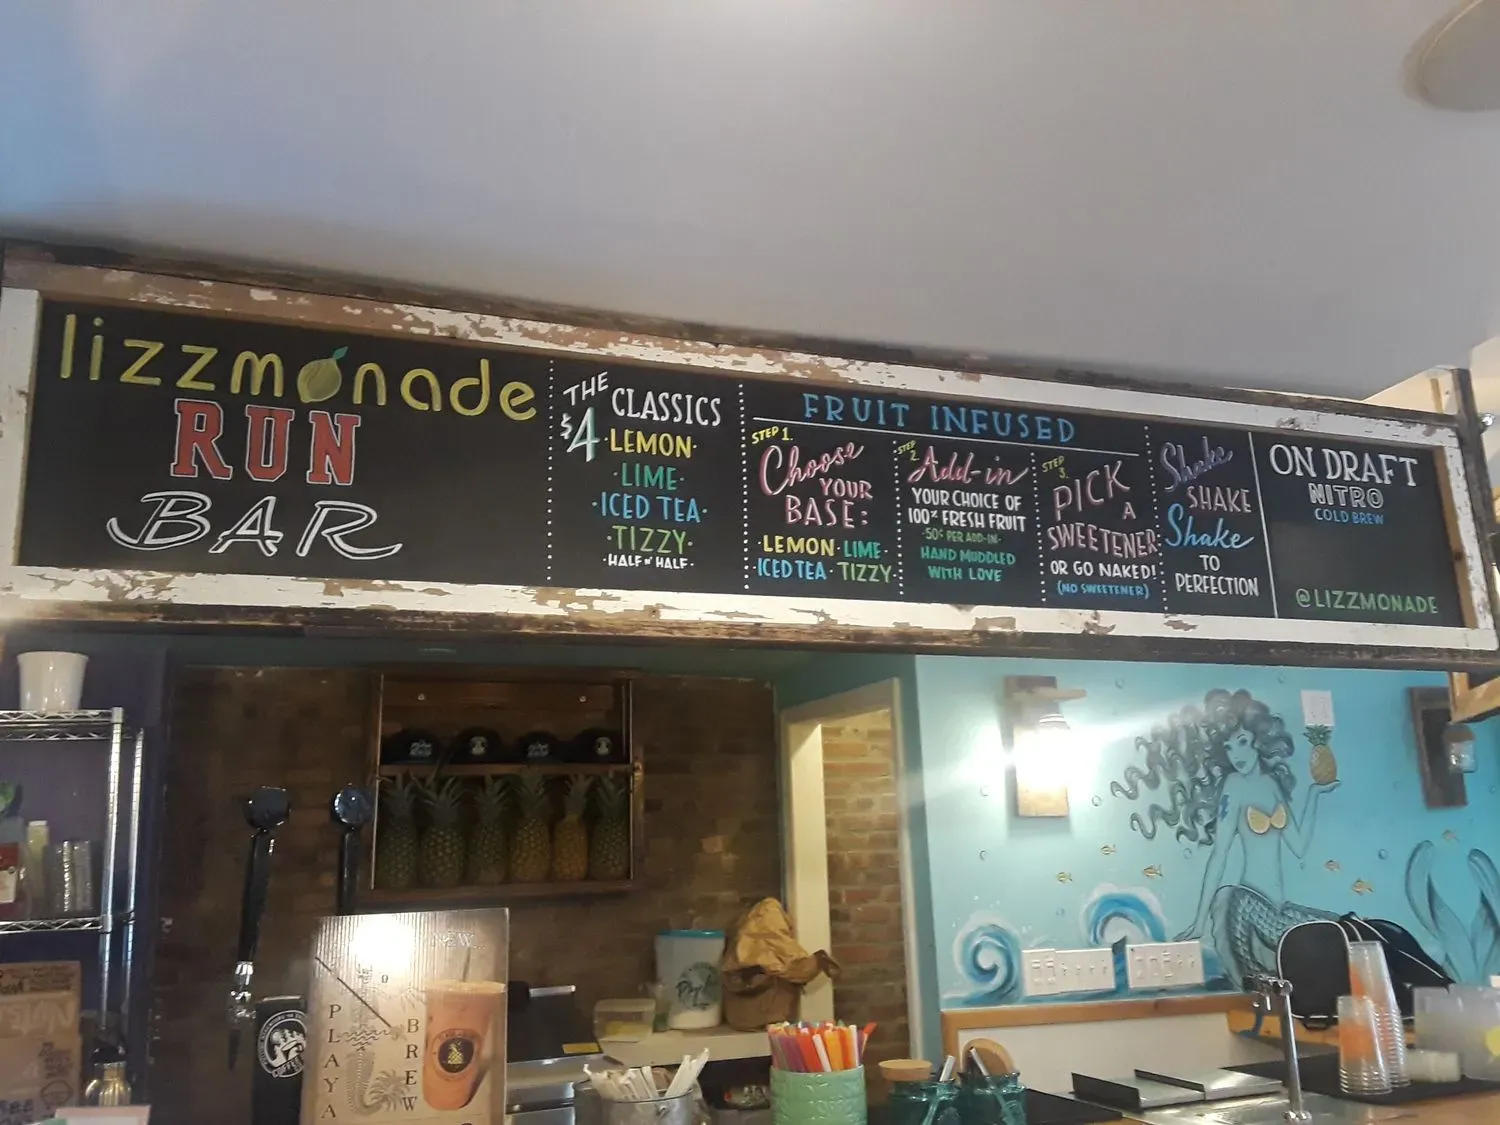 lizzmonade
RUN
BAR
THE
$4 CLASSICS
·LEMON·
·LIME·
·ICED TEA·
·TIZZY·
·HALF N' HALF·
FRUIT INFUSED
STEP 1.
Choose
YOUR
BASE:
LEMON · LIME ·
ICED TEA · TIZZY
STEP 2.
Add-in
YOUR CHOICE OF
100% FRESH FRUIT
·50¢ PER ADD-IN·
HAND MUDDLED
WITH LOVE
STEP 3.
PICK
A
SWEETENER
OR GO NAKED!
(NO SWEETENER)
Shake
SHAKE
Shake
TO
PERFECTION
ON DRAFT
NITRO
COLD BREW
@LIZZMONADE
NEW
PLAYA
BREW
COFFEE